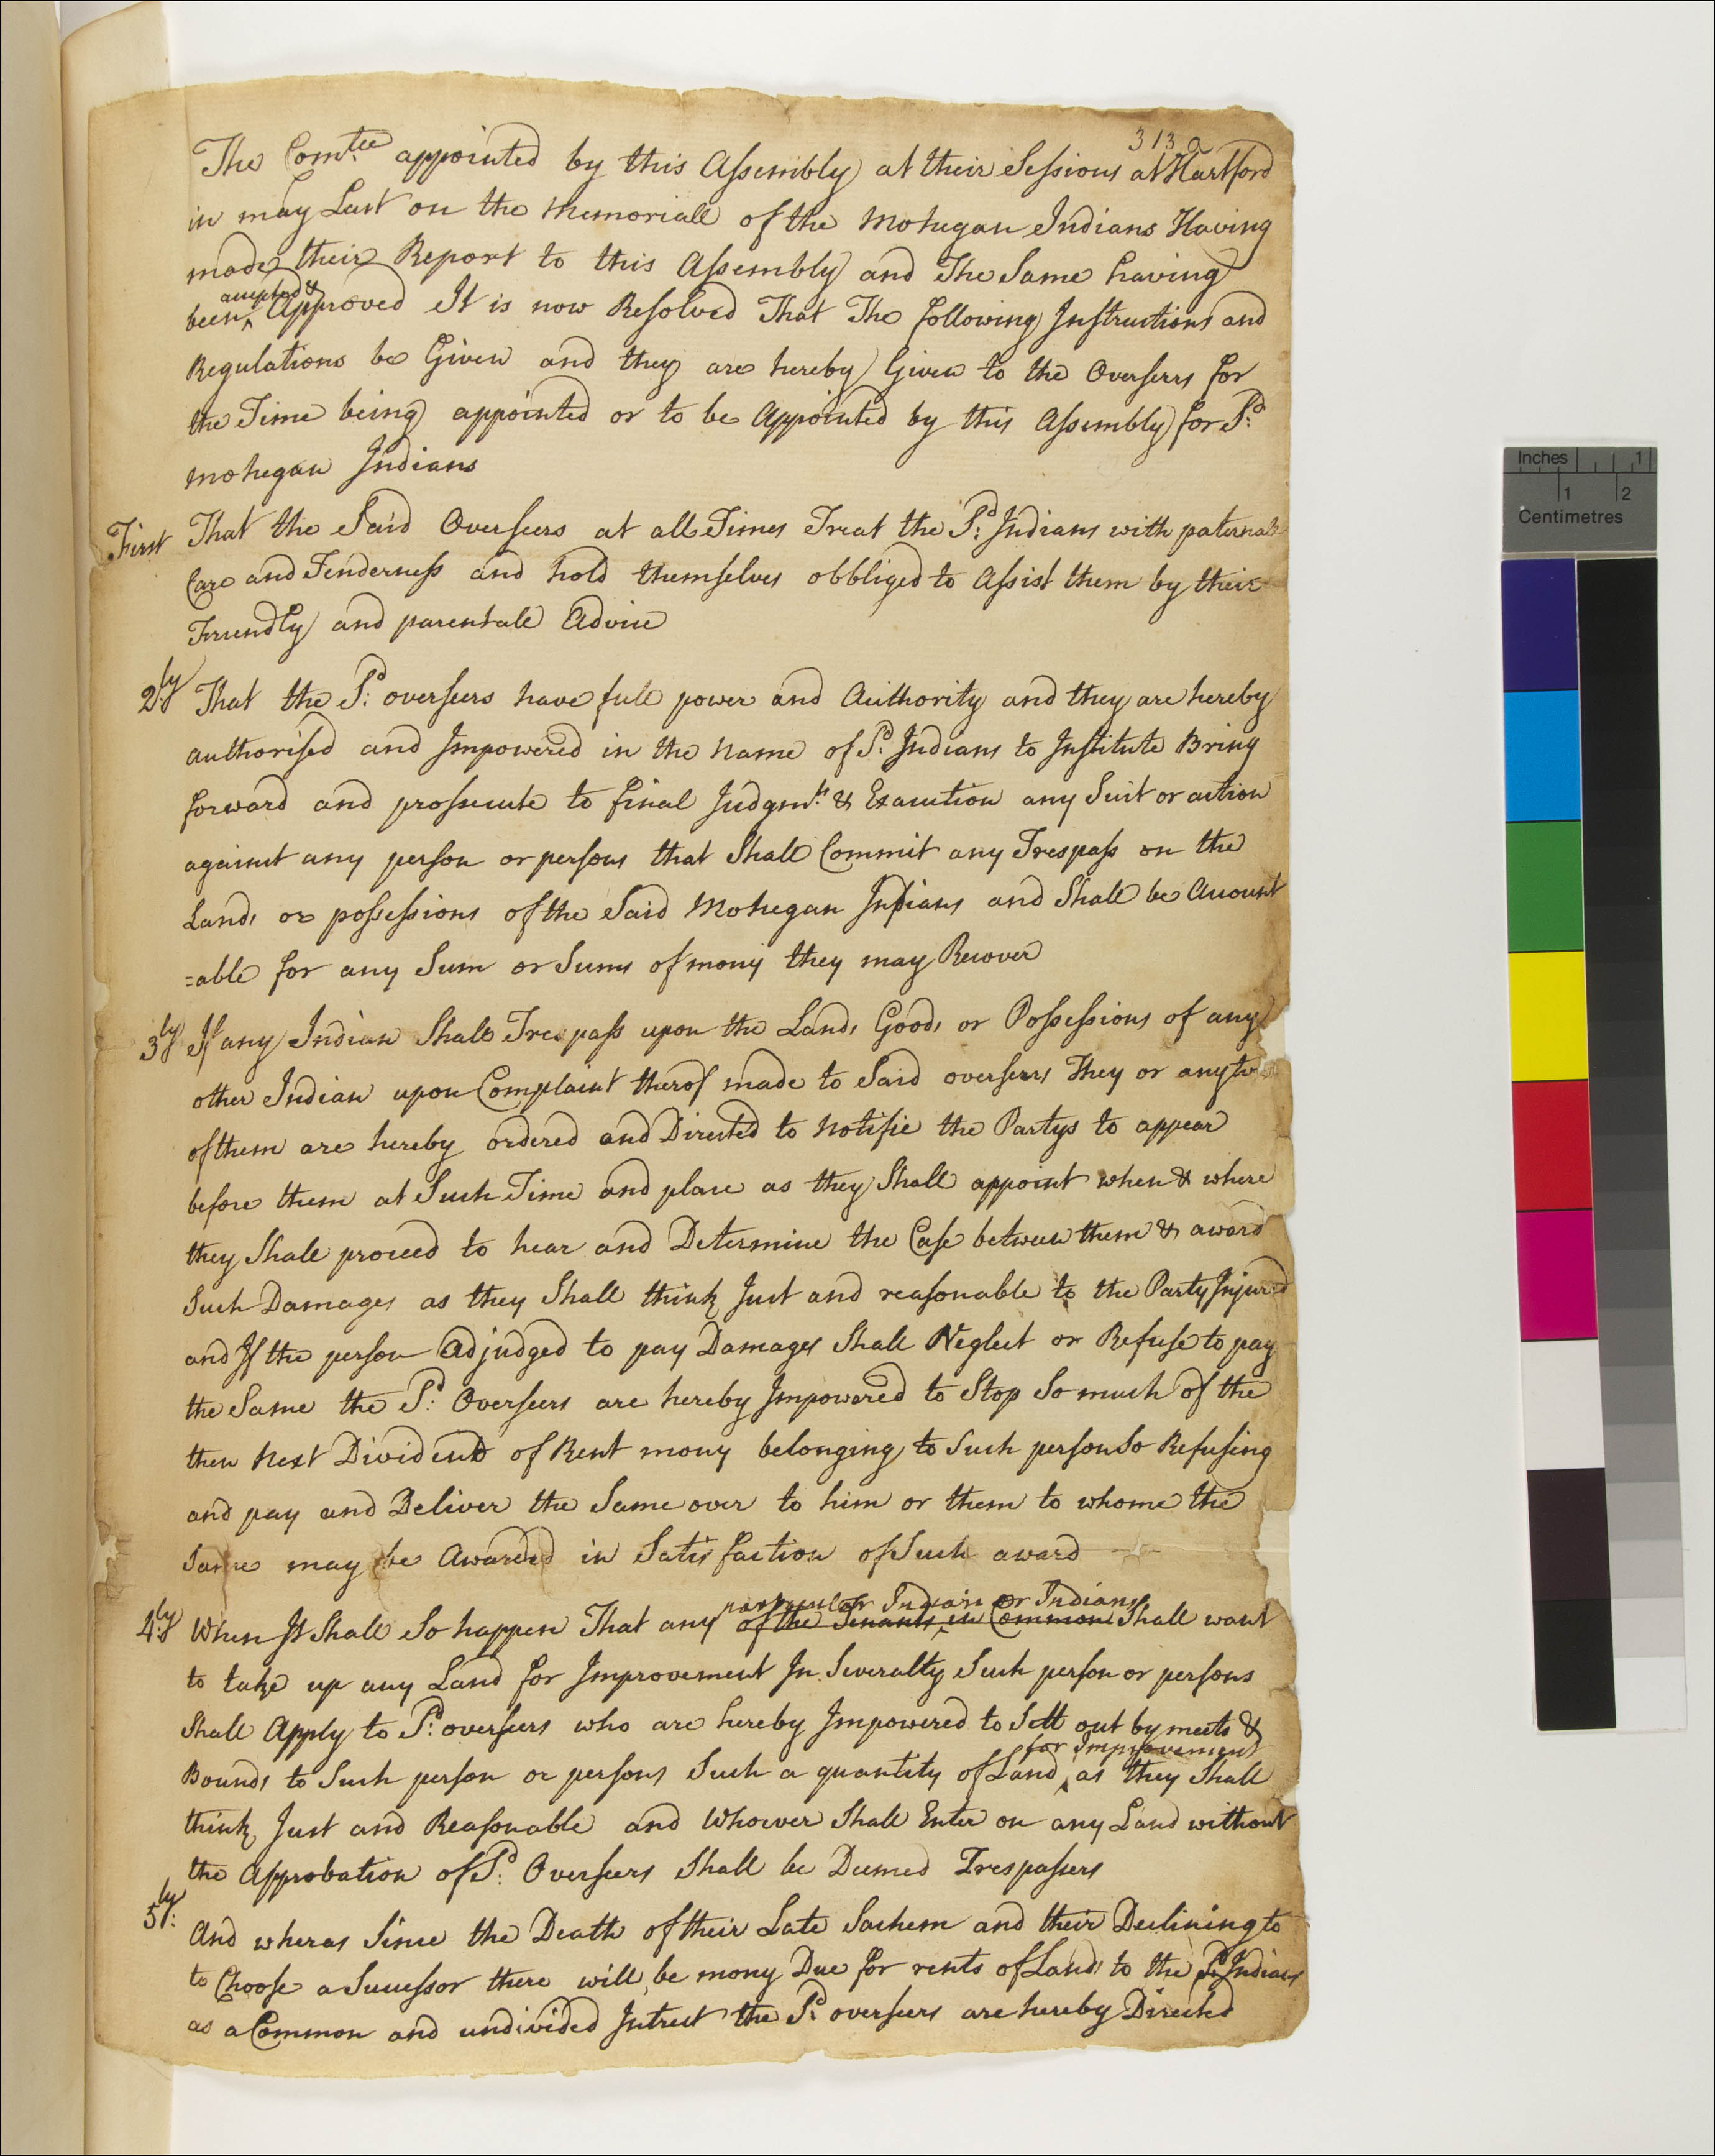 313 a
The Com.tee appointed by this Assembly at their Sessions at Hartford
in may Last on the Memoriall of the Mohegan Indians Having
made their Report to this Assembly and The Same having
accepted &
been ^ Approved It is now Resolved That The following Instructions and
Regulations be Given and they are hereby Given to the Overseers for
the Time being appointed or to be Appointed by this Assembly for S.d
Mohegan Indians
First That the Said Overseers at all Times Treat the S.d Indians with paternal
Care and Tenderness and hold themselves obbliged to Assist them by their
Friendly and parentall Advice
2.ly That the S.d overseers have full power and Authority and they are hereby
authorised and Impowered in the Name of S.d Indians to Institute Bring
forward and prossecute to final Judgm.t & Execution any Suit or action
against any person or persons that Shall Commit any Trespass on the
Lands or possessions of the Said Mohegan Indians and Shall be Account
=able for any Sum or Sums of mony they may Recover
3.ly If any Indian Shall Trespass upon the Lands Goods or Possessions of any
other Indian upon Complaint therof made to Said overseers They or any two
of them are hereby ordered and Directed to Notifie the Partys to appear
before them at Such Time and place as they Shall appoint when & where
they Shall proceed to hear and Determine the Case between them & award
Such Damages as they Shall think Just and reasonable to the Party Injured
and If the person Adjudged to pay Damages Shall Neglect or Refuse to pay
the Same the S.d Overseers are hereby Impowered to Stop So much of the
then Next Dividend of Rent mony belonging to Such person So Refusing
and pay and Deliver the Same over to him or them to whome the
Same may be Awarded in Satisfaction of Such award
particular Indian or Indians
4.ly When It Shall So happen That any of the Tenants in Common Shall want
to take up any Land for Improvement In Severalty Such person or persons
Shall Apply to S.d overseers who are hereby Impowered to Sett out by meets &
for Improvement
Bounds to Such person or persons Such a quantity of Land ^ as they Shall
think Just and Reasonable and Whoever Shall Enter on any Land without
the Approbation of S.d Overseers Shall be Deemed Trespassers
5.ly And wheras Since the Death of their Late Sachem and their Declining to
to Choose a Successor there will be mony Due for rents of Lands to the S.d Indians
as a Common and undivided Intrest the S.d overseers are hereby Directed